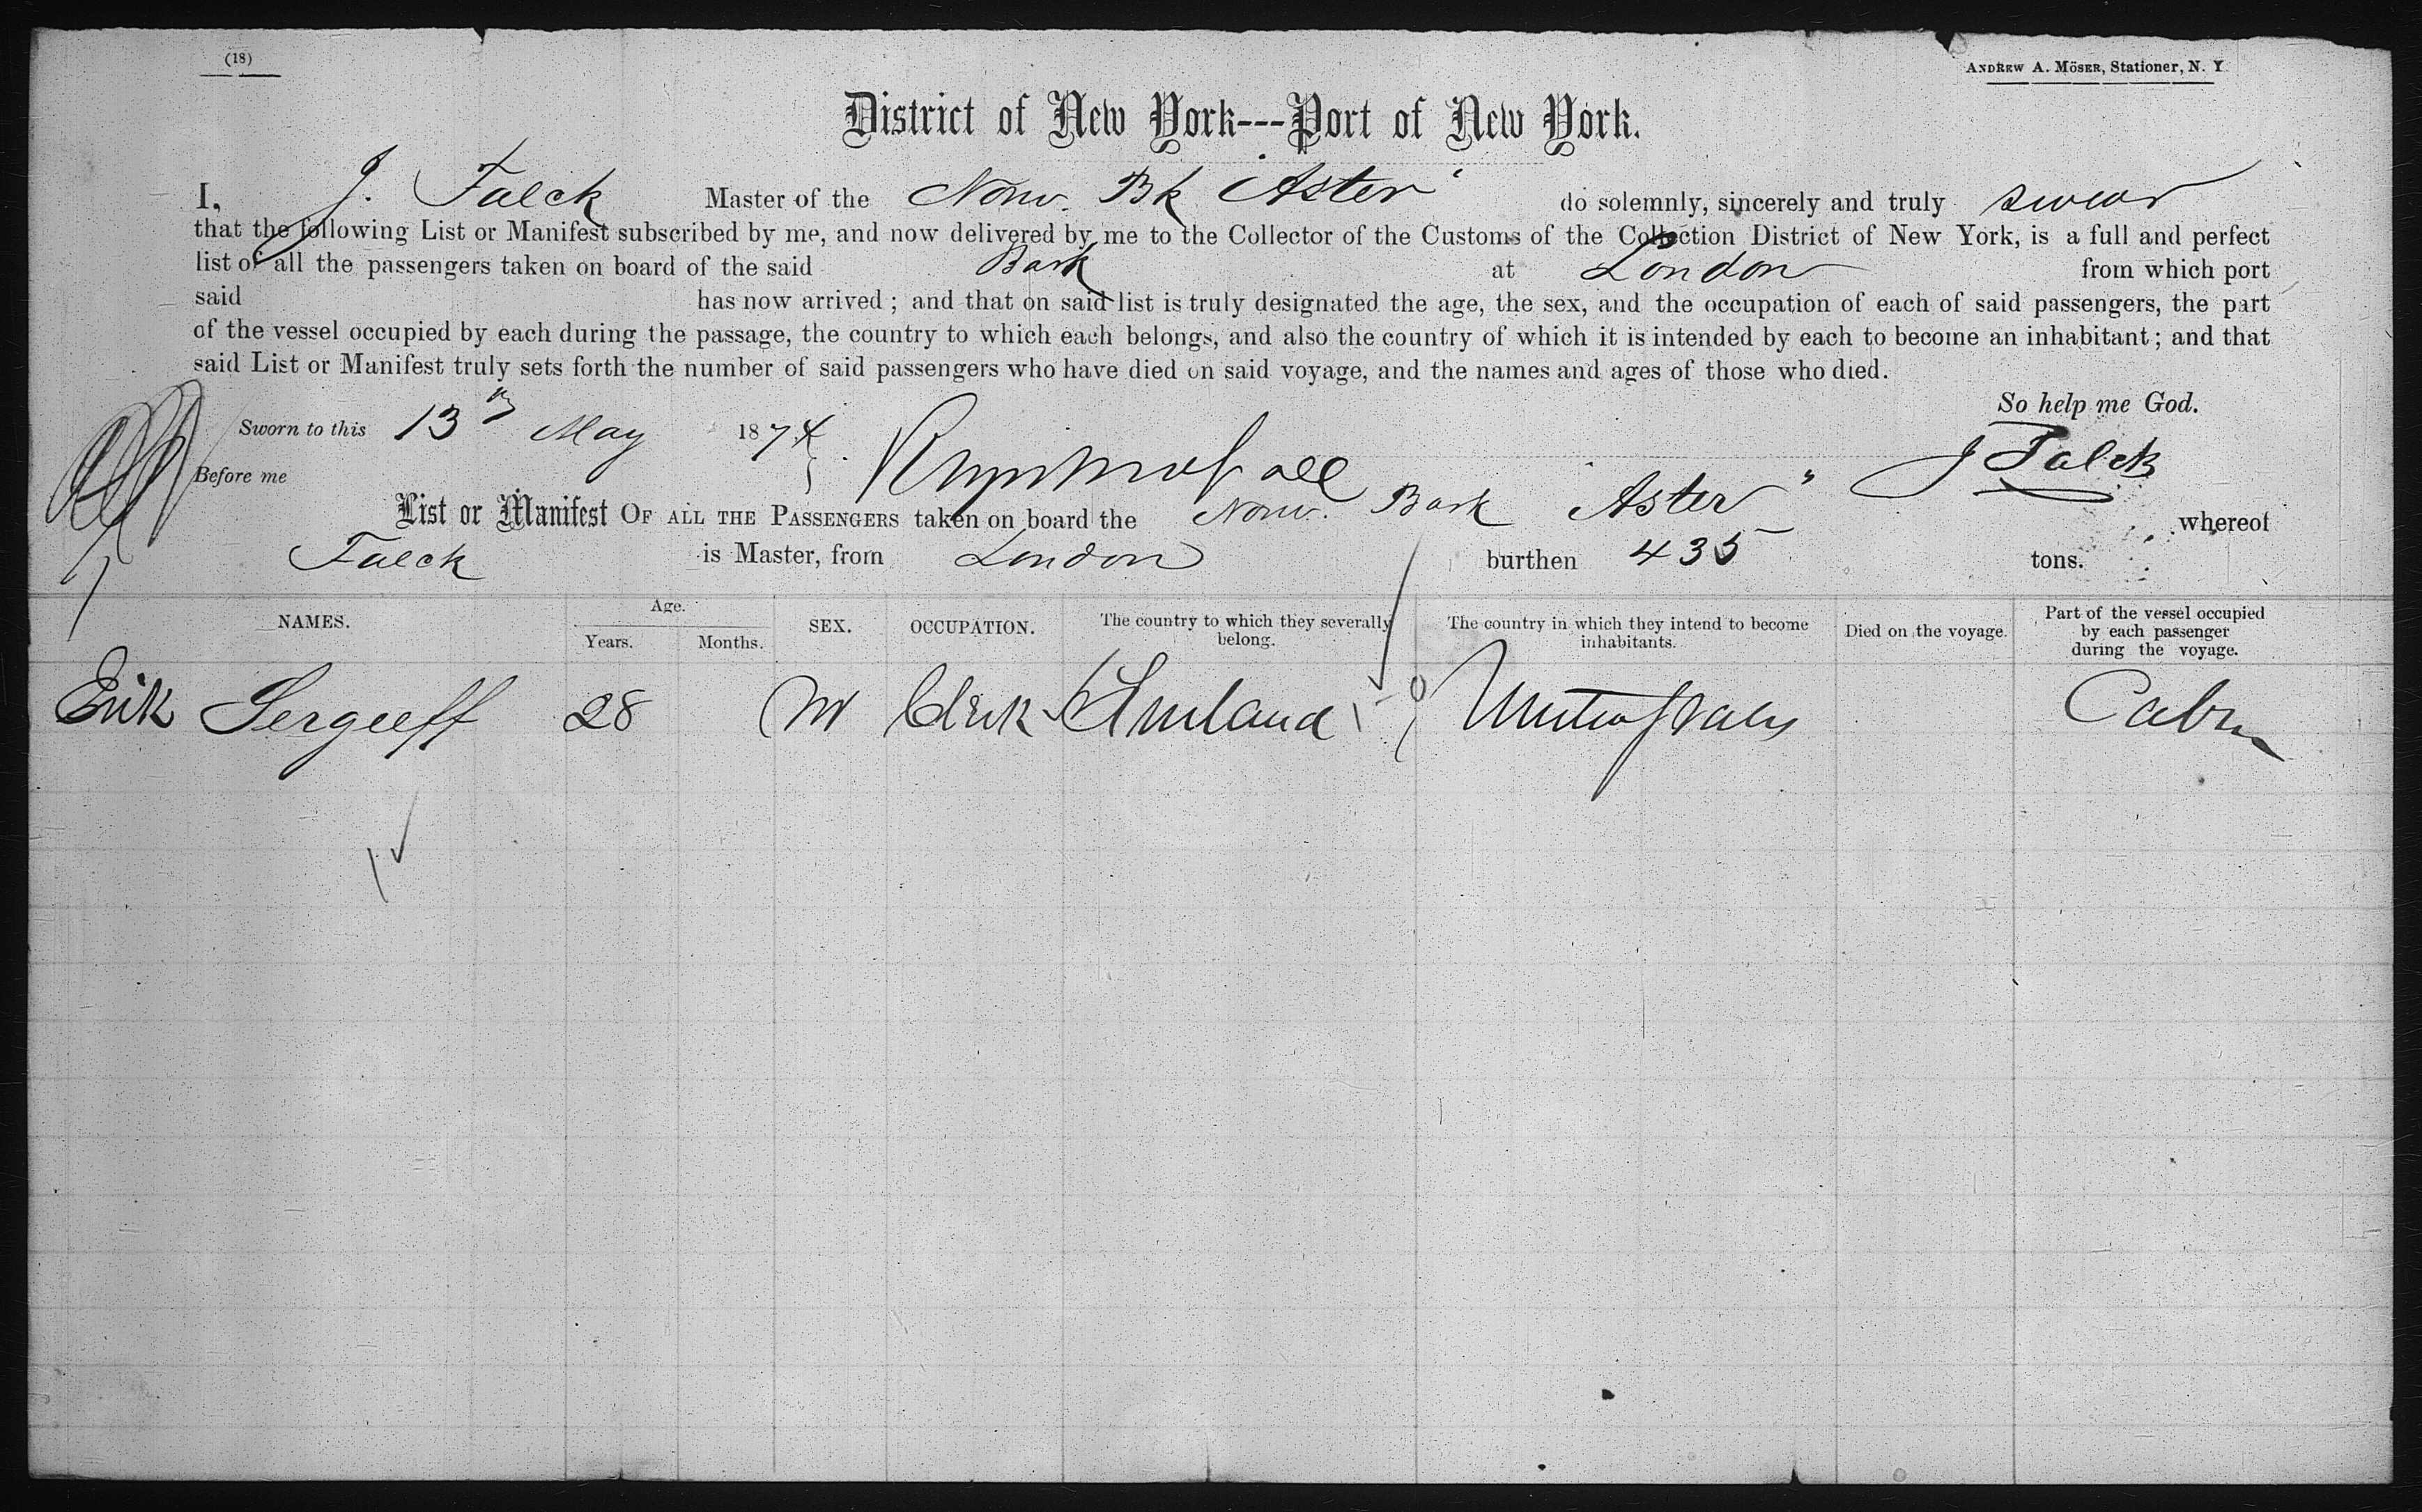 (18)
ANDREW A. MÖSER, Stationer, N. Y
District of New York---Port of New York.
I, J. Falck Master of the Norw. Bk "Aster" do solemnly, sincerely and truly swear
that the following List or Manifest subscribed by me, and now delivered by me to the Collector of the Customs of the Collection District of New York, is a full and perfect
list of all the passengers taken on board of the said Bark at London from which port
said has now arrived ; and that on said list is truly designated the age, the sex, and the occupation of each of said passengers, the part
of the vessel occupied by each during the passage, the country to which each belongs, and also the country of which it is intended by each to become an inhabitant ; and that
said List or Manifest truly sets forth the number of said passengers who have died on said voyage, and the names and ages of those who died.
So help me God.
Sworn to this 13th May 1874
J Falck
Before me
List or Manifest OF ALL THE PASSENGERS taken on board the Norw. Bark Aster" whereof
Falck is Master, from London burthen 435 tons.
NAMES. Age. Years. Months. SEX. OCCUPATION. The country to which they severally belong. The country in which they intend to become inhabitants. Died on the voyage. Part of the vessel occupied by each passenger during the voyage.
Erik Sergeeff 28 M Clerk Finland United States Cabin